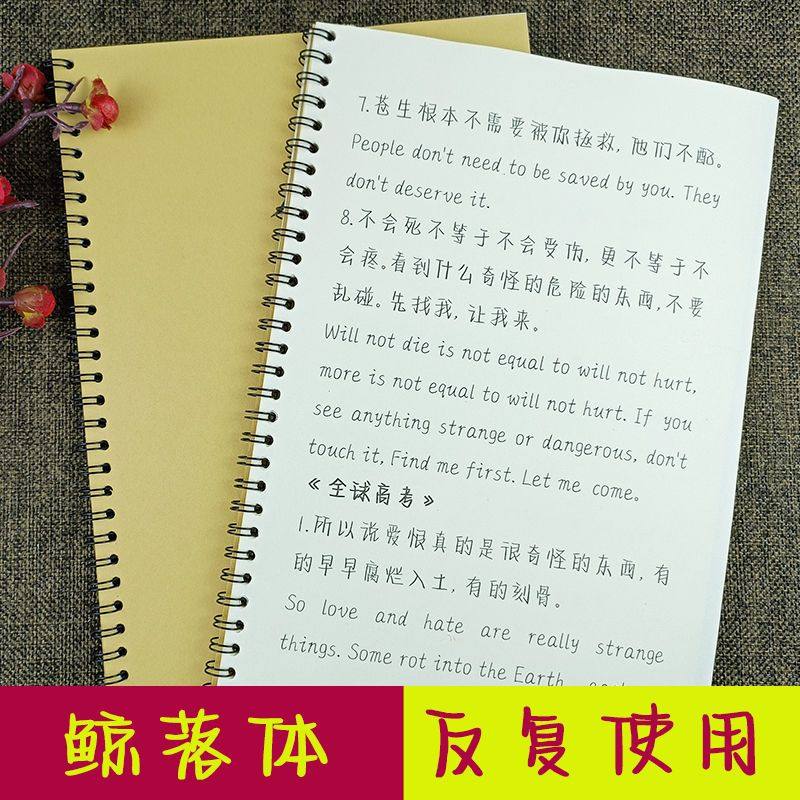 7.苍生根本不需要被你拯救,他们不配。
People don't need to be saved by you. They
don't deserve it.
8.不会死不等于不会受伤,更不等于不
会疼。看到什么奇怪的危险的东西,不要
乱碰。先找我,让我来。
Will not die is not equal to will not hurt,
more is not equal to will not hurt. If you
see anything strange or dangerous, don't
touch it, Find me first. Let me come。
《全球高考》
1.所以说爱恨真的是很奇怪的东西,有
的早早腐烂入土,有的刻骨。
So love and hate are really strange
things. Some rot into the Earth
鲸落体
反复使用